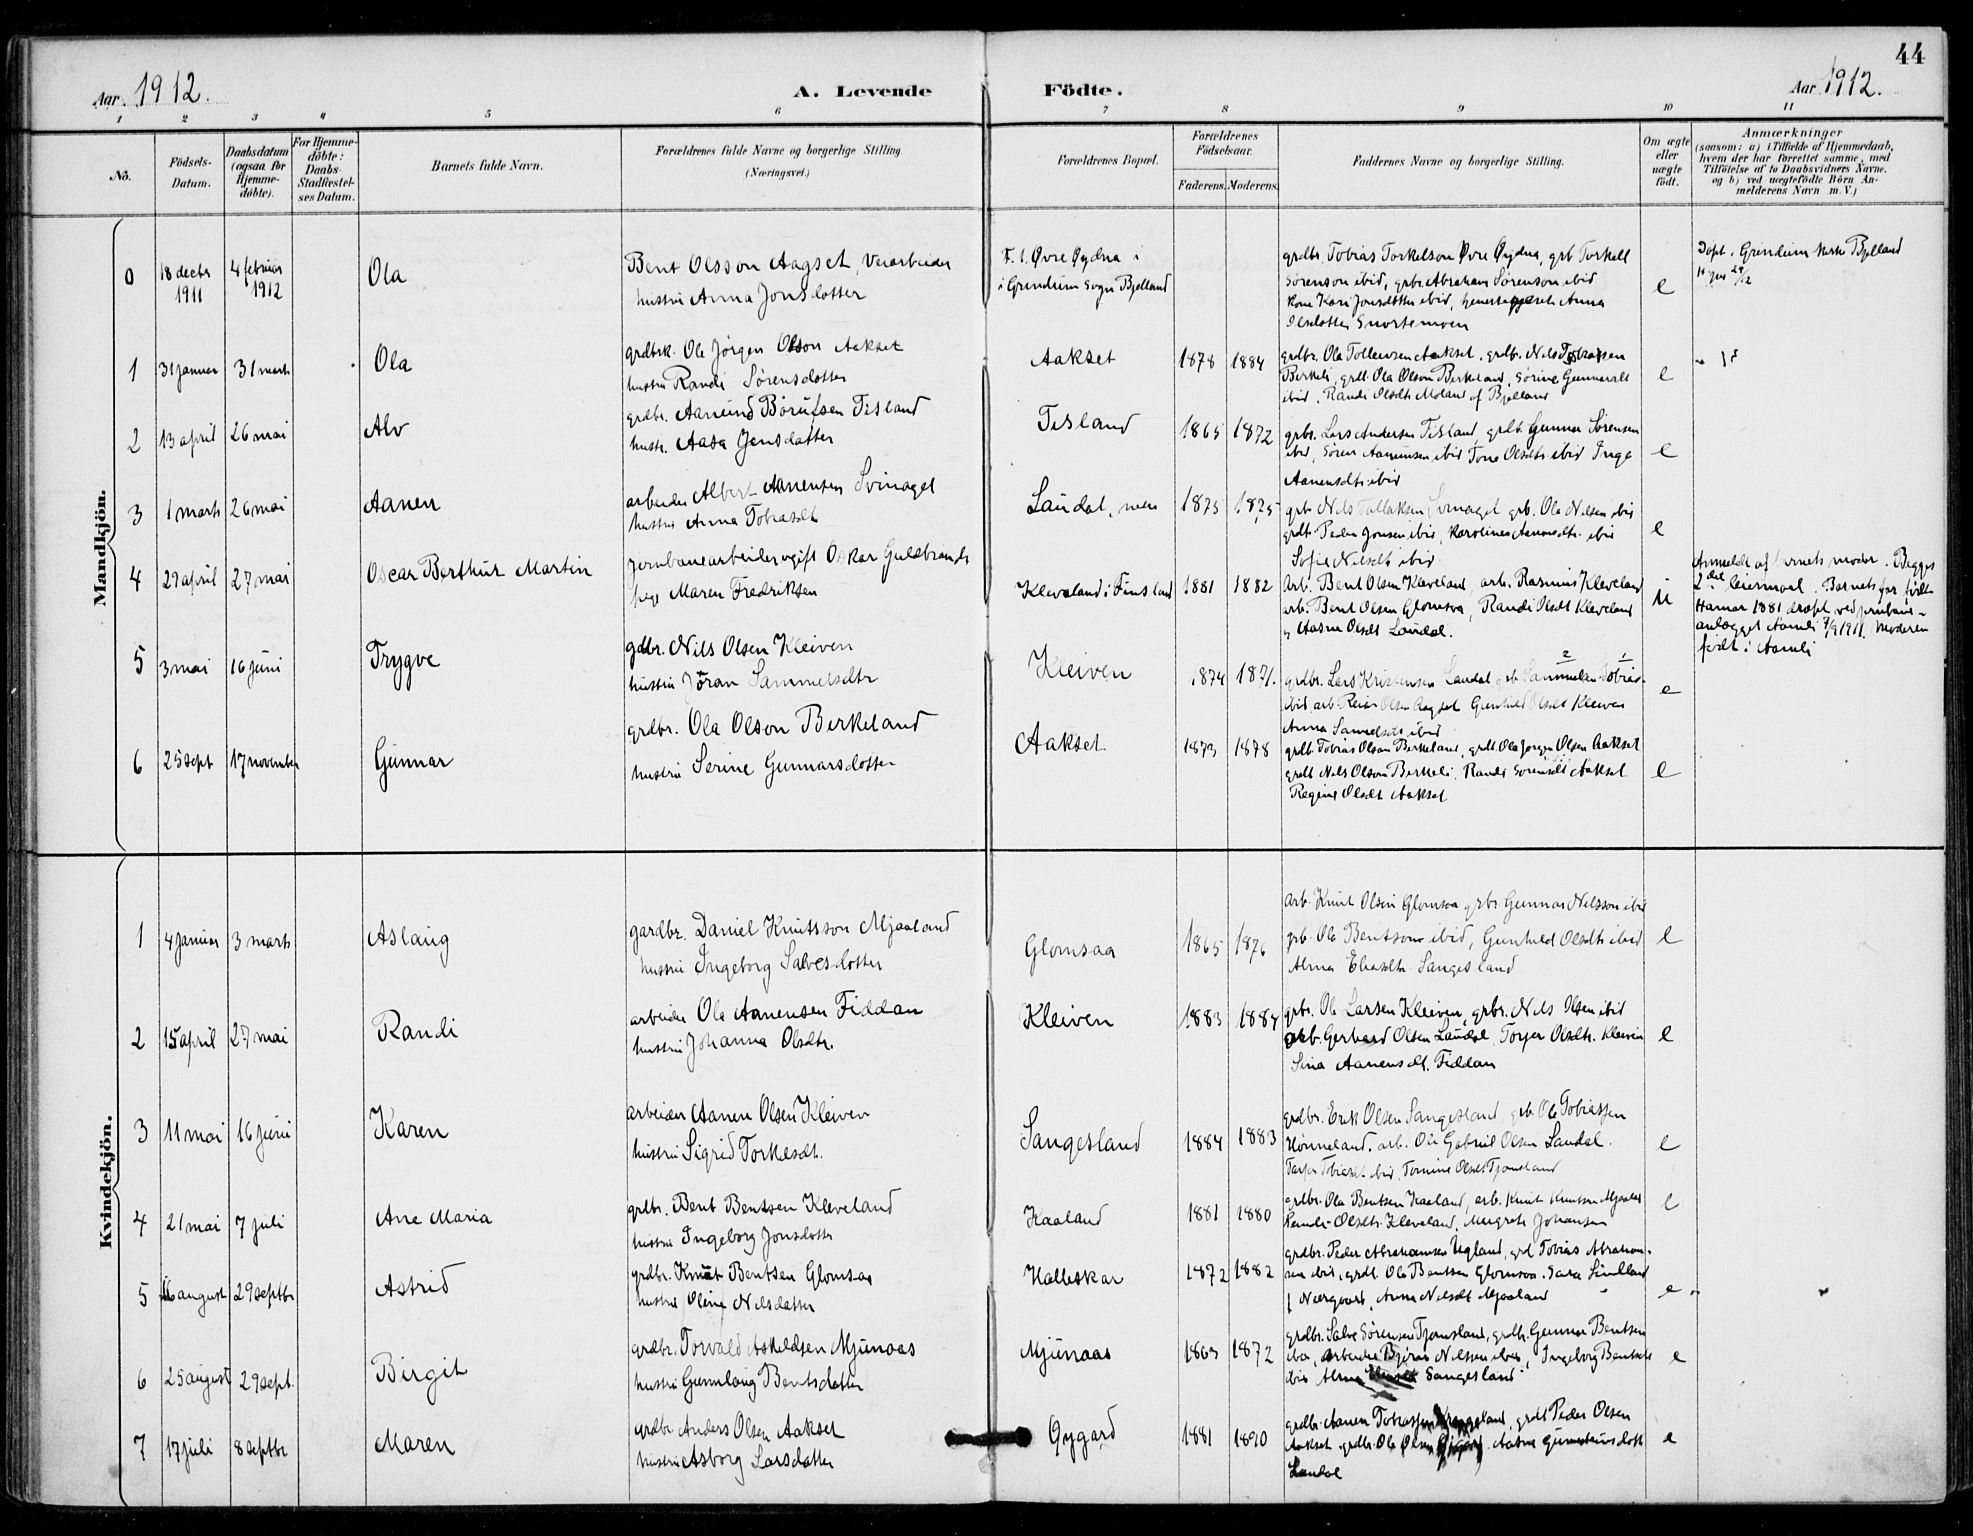 44
Aar. 1912.
A. Levende Födte.
Aar 1912.
1 2 3 4 5 6 7 8 9 10 11
No.
Födsels-Datum.
Daabsdatum (ogsaa for Hjemmedöbte).
For Hjemmedöbte: Daabs-Stadfæstelses Datum.
Barnets fulde Navn.
Forældrenes fulde Navne og borgerlige Stilling. (Næringsvei.)
Forældrenes Bopæl.
Forældrenes Födselsaar.
Faderens. Moderens.
Faddernes Navne og borgerlige Stilling.
Om ægte eller uægte födt.
Anmærkninger
(saasom: a) i Tilfælde af Hjemmedaab, hvem der har forrettet samme, med Tilföielse af to Daabsvidners Navne, og b) ved uægtefödte Börn Anmelderens Navn m. V.)
Mandkjön.
0 18 decbr 1911 4 februar 1912 Ola
Bent Olsson Aagset, Veiarbeider
hustru Anna Jonsdotter
F. i. Øvre Øydna i
i Grindum sogn Bjelland
grdbr. Tobias Torkelson Øvre Øydna, grb Torkell
Sørenson ibid, grbr. Abraham Sørenson ibid
Kone Kari Jonsdotter ibid, Anna
Olsdotter Snortemoen
e
Døpt i Grindum kirke Bjelland
1 31 januar 31 marts Ola
grdbrk. Ole Jørgen Olson Aakset
hustru Randi Sørensdotter
Aakset 1878 1884
grdbr. Ole Tollevsen Aakset, grdbr. Nils Tobiassen
Birkeli, grdb. Ola Olson Birkeland, Sørine Gunnarsdt
ibid, Randi Olsdtr Moland af Bjelland
e
2 13 april 26 mai Alv
grdbr. Aanund Børufsen Tisland
hustr. Aasa Jensdatter
Tisland 1865 1872
grbr. Lars Andersen Tisland, grdb. Gunnar Sørensen
ibid, Søren Aanunsen ibid Tone Olsdtr ibid Inge
Aanensdtr ibid
e
3 1 marts 26 mai Aanen
arbeider Albert Aanensen Svinaget
hustru Anna Tobiasdt
Laudal, 1875 1875
grb Nils Tallaksen Svinaget grb. Ola Nilsen ibid
grdb. Peder Jonsen ibid, Karoline Aanensdtr. ibid
Sofie Nilsdt ibid
e
4 29 april 27 mai Oscar Berthur Martin
Jernbanearbeider ugift Oskar Guldbrands
pige Maren Fredriksen
Kleveland i Finsland 1881 1882
Arb. Bent Olsen Kleveland, arb. Rasmus Kleveland
arb. Bent Olsen Glomsaa, Randi Olsdt Kleveland
og Aasne Olsdt Laudal.
u
Anmeldt af barnets moder. Begges
2det leiermaal. Barnets far født
Hamar 1881 dræpt ved jernbane-
anlægget Aamli 7/9 1911. Moderen
født i Aamli
5 3 mai 16 juni Trygve
gdbr. Nils Olsen Kleiven
hustru Jöran Sammelsdtr
Kleiven 1874 1871.
2 1
grdbr. Lars Kristensen Laudal grb Sammelsen Tobias
ibid arb Reiar Olsen Aagset Gunhild Olsdt Kleiven
Anna Samuelsdt ibid
e
6 25 sept 17 november Gunnar
grdbr. Ola Olson Birkeland
hustru Serine Gunnarsdotter
Aakset 1873 1878
grdb Tobias Olson Birkeland, grdb. Ola Jørgen Olsen Aakset
grdb Nils Olson Birkeli. Randi Sørensdt Aakset
Regine Olsdt Aakset
e
Kvindekjön.
1 4 januar 3 marts Aslaug
gardbr. Daniel Knutsson Mjaaland
hustru Ingeborg Salvesdotter
Glomsaa 1865 1876
Arb. Knut Olsen Glomsaa grbr Gunnar Nilsson ibid
grb. Ola Bentsone ibid, Gunhild Olsdtr ibid
Alma Eliasdtr Sangesland
e
2 15 april 27 mai Randi
arbeider Ola Aanensen Fiddan
hustru Johanna Olsdtr.
Kleiven 1883 1884
grbr. Ole Larsen Kleiven, grbr. Nils Olsen ibid
arb. Gerhard Olsen Laudal, Torjer Olsdtr. Kleiven
Sina Aanensdt. Fiddan
e
3 11 mai 16 juni Karen
arbeider Aanen Olsen Kleiven
hustru Sigrid Torkelsdt.
Sangesland 1884 1883
grdbr. Erik Olsen Sangesland, grb. Ole Tobiassen
Hønneland, arb. Ole Gabriel Olsen Laudal.
Tarjer Tobiasdt ibid, Tomine Olsdt Tjomsland
e
4 21 mai 7 juli Ane Maria
grdbr. Bent Bentsen Kleveland
hustru Ingeborg Jonsdotter
Kaaland 1881 1880
grdbr. Ola Bentsen Kaaland, arb. Knut Knutson Mjaaland
Randi Olsdtr. Kleveland, Margrete Johansen
e
5 16 august 29 septbr Astrid
grdbr. Knut Bentsen Glomsaa
hustru Oline Nilsdatter
Halleskar 1872 1882
grdbr. Peder Abrahamsen Ugland, grd Tobias Abraham-
sen ibid, grdb. Ole Bentsen Glomsaa. Sara Lindland
f Nærgaard, Anna Nilsdt Mjaaland
e
6 25 august 29 sept. Birgit
grdbr. Torvald Askildsen Mjunaas
hustru Gunnlaug Bentsdatter
Mjunaas 1863 1872
grdbr. Salve Sørensen Tjomsland, grdb. Gunnar Bentsen
ibid, arbeider Bjørn Nilssen ibid, Ingeborg Bentsdt
ibid Alma Eliasdt Sangesland
e
7 17 juli 8 septbr Maren
grdbr Anders Olsen Aakset
hustru Asborg Larsdatter
Gygard 1881 1890
grdbr. Aanen Tobiassen grdb Peder Olsen
Aakset grdbr. Ole Olsen Aasne Gumsteinsdott
Laudal
e